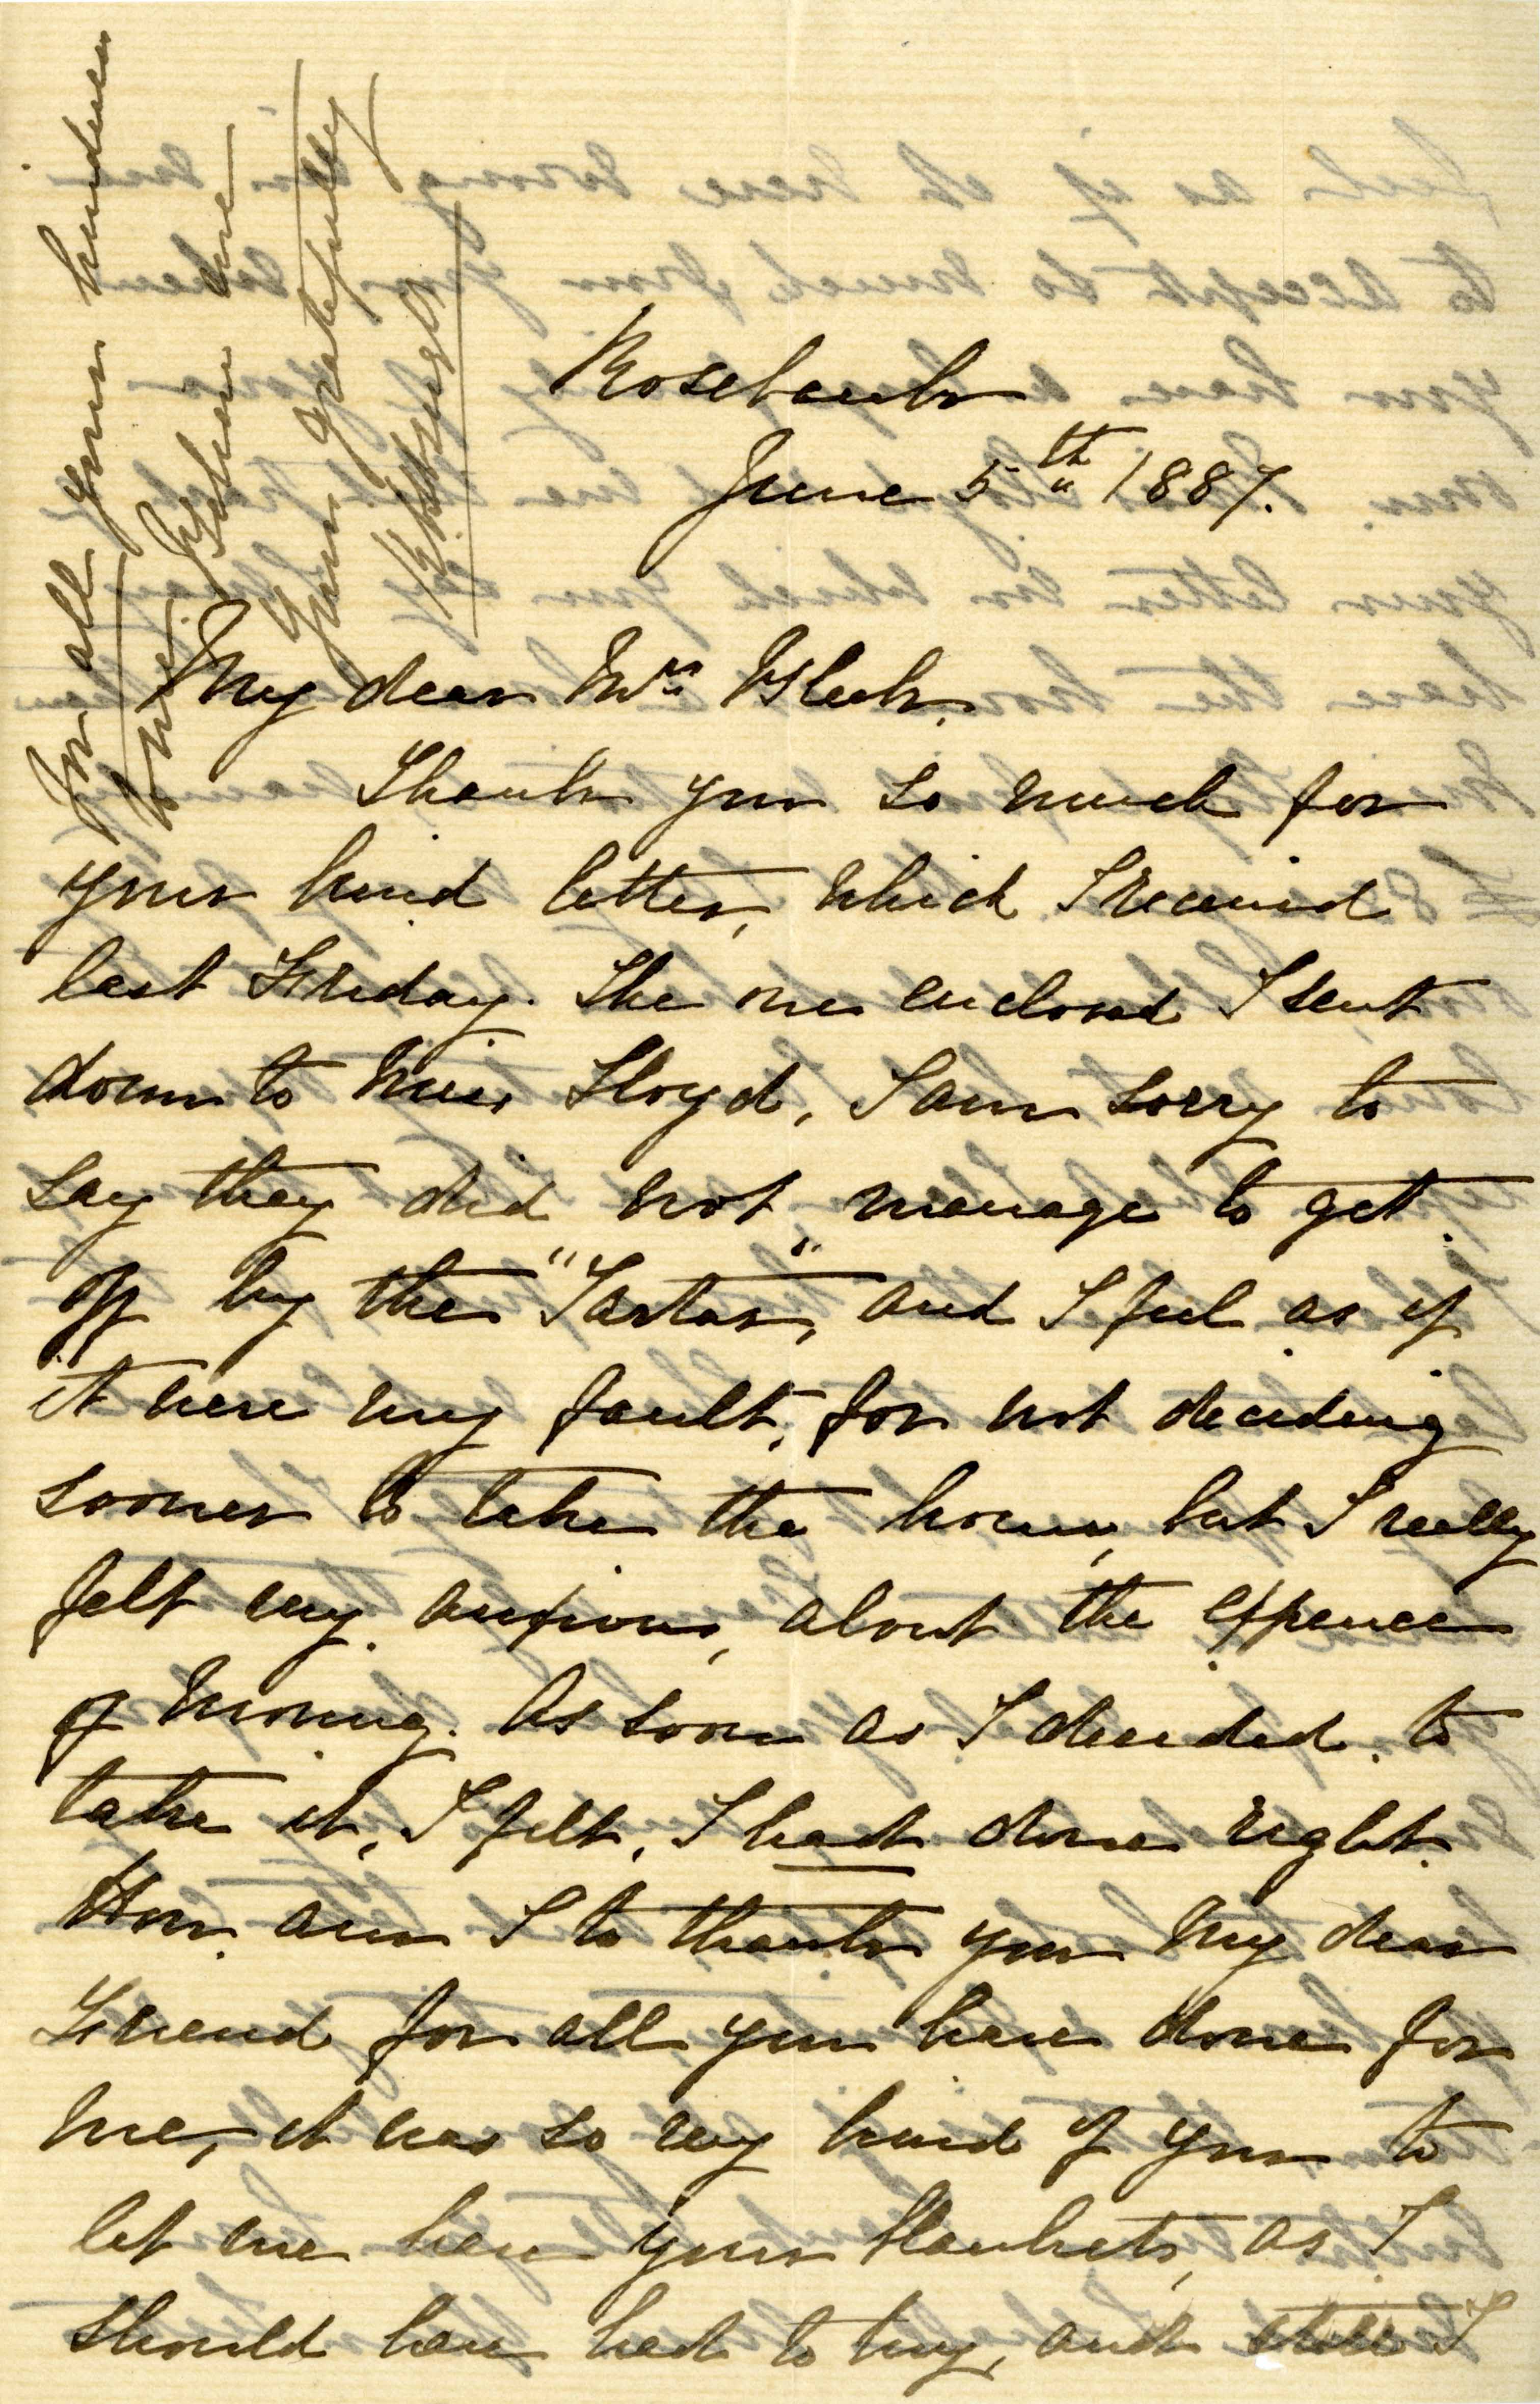 Rosebank
June 5th 1887.
My dear Mrs Bleek.
Thank you so much for
your kind letter, which I received
last Friday. The one enclosed I sent
down to Miss Lloyd, I am sorry to
say they did not manage to get
off by the "Tartar", and I feel as if
it were my fault, for not deciding
sooner to take the house, but I really
felt very anxious, about the expence
of moving. As soon as I decided to
take it, I felt, I had done right.
How am I to thank you my dear
Friend for all you have done for
me, it was so very kind of you to
let me have your blankets, as I
should have had to buy, and I
for all your kindness
to me. Believe me
Yours gratefully